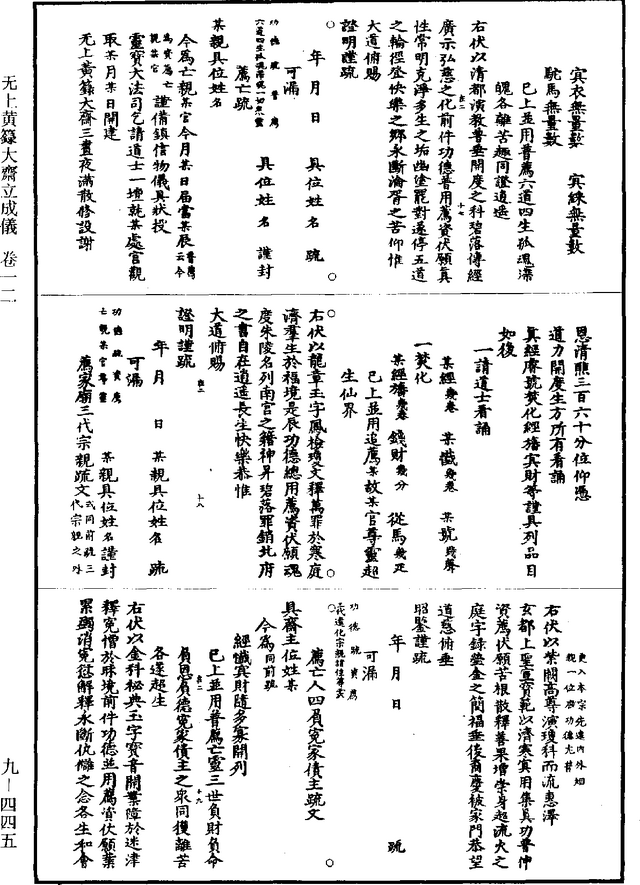 冥衣無量數　冥綵無量數
駝馬無量數
已上並用普薦六道四生孤魂滯
魄各離苦趣同證逍遙
右伏以清都演教普垂開度之科碧落傳經
廣示弘慈之化前件功德普用薦資伏願真
性常明克淨多生之垢幽塗罷對遂停五道
之輪徑登快樂之鄉永斷淪胥之苦仰惟
大道俯賜
證明謹疏
年　月　日　具位姓名　疏
可漏
功德疏普薦
六道四生孤魂滯魄一切衆靈
具位姓名　謹封
薦亡疏
某親具位姓名
今為亡親某官今月某日屆當某辰
謹備鎮信物儀具狀投
靈寶大法司乞請道士一壇就某處宮觀
取某月某日開建
无上黃籙大齋三晝夜滿散修設謝
恩清醮三百六十分位仰憑
道力開度生方所有看誦
真經寶號焚化經旛冥財等謹具列品目
如後
一請道士看誦
某經幾卷　某懺幾卷　某號幾聲
一焚化
某經旛幾卷　錢財幾分　從馬幾疋
已上並用追薦某故某官尊靈超
生仙界
右伏以龍章玉字鳳檢瓊文釋萬罪於寒庭
濟羣生於福境是辰功德總用薦資伏願魂
度朱陵名列南宮之籍神昇碧落罪銷北府
之書自在逍遙長生快樂恭惟
大道俯賜
證明謹疏
年　月　日　某親具位姓名　疏
可漏
功德疏資薦
亡親某官尊靈
某親具位姓名謹封
薦家廟三代宗親疏文
式同前疏三
代宗親之外
更入本宗先遠內外姻
親一位廣功德尤甚
右伏以紫闕高尊演瓊科而流惠澤
玄都上聖宣寶範以濟寒冥用集真功普伸
資薦伏願苦根散釋善果增崇身超流火之
庭字錄鍊金之簡福垂後裔慶被家門恭望
道慈俯垂
昭鑒謹疏
年　月　日　疏
可漏
功德疏資薦
薦亡人四負冤家債主疏文
具齋主位姓某
今為同前疏
經懺冥財隨多寡開列
已上並用普薦亡靈三世負財負命
負恩負德冤家債主之衆同獲離苦
各遂超生
右伏以金科祕典玉字寶音開業障於迷津
釋冤憎於昧境前件功德並用薦資伏願業
累蠲消冤愆解釋永斷仇讎之念各生和會
无上黃籙大齋立成儀　卷一二
九－四四五